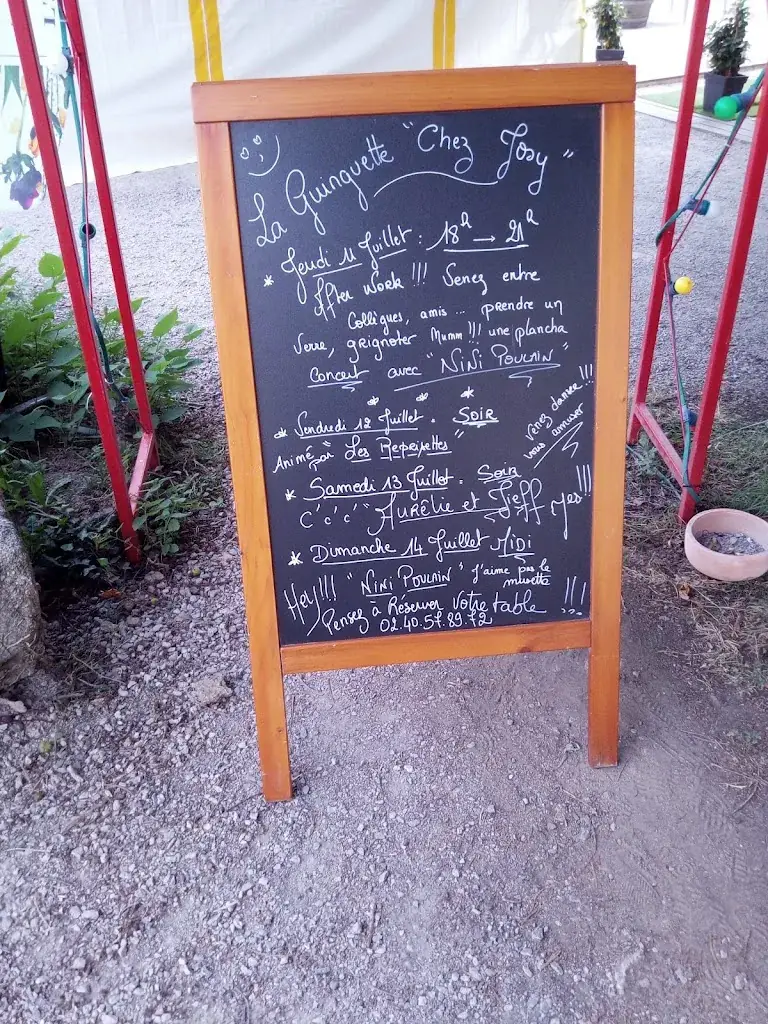 La Guinguette "Chez Josy"
* Jeudi 11 Juillet : 18h → 21h
After Work !!! Venez entre
Collègues, amis ... prendre un
verre, grignoter Mumm !!! une plancha
Concert avec "NiNi POULAIN"
* Vendredi 12 Juillet. SOIR
Animé par "Les Pepeyettes"
Venez danser !!!
vous amuser
* Samedi 13 Juillet. Soir
C'c'c' "Aurélie et Jieff Yes !!!
* Dimanche 14 Juillet MiDi
Hey!!! "NiNi POULAIN" J'aime pas le
musette
Pensez à Réserver votre table !!!
02.40.57.89.72